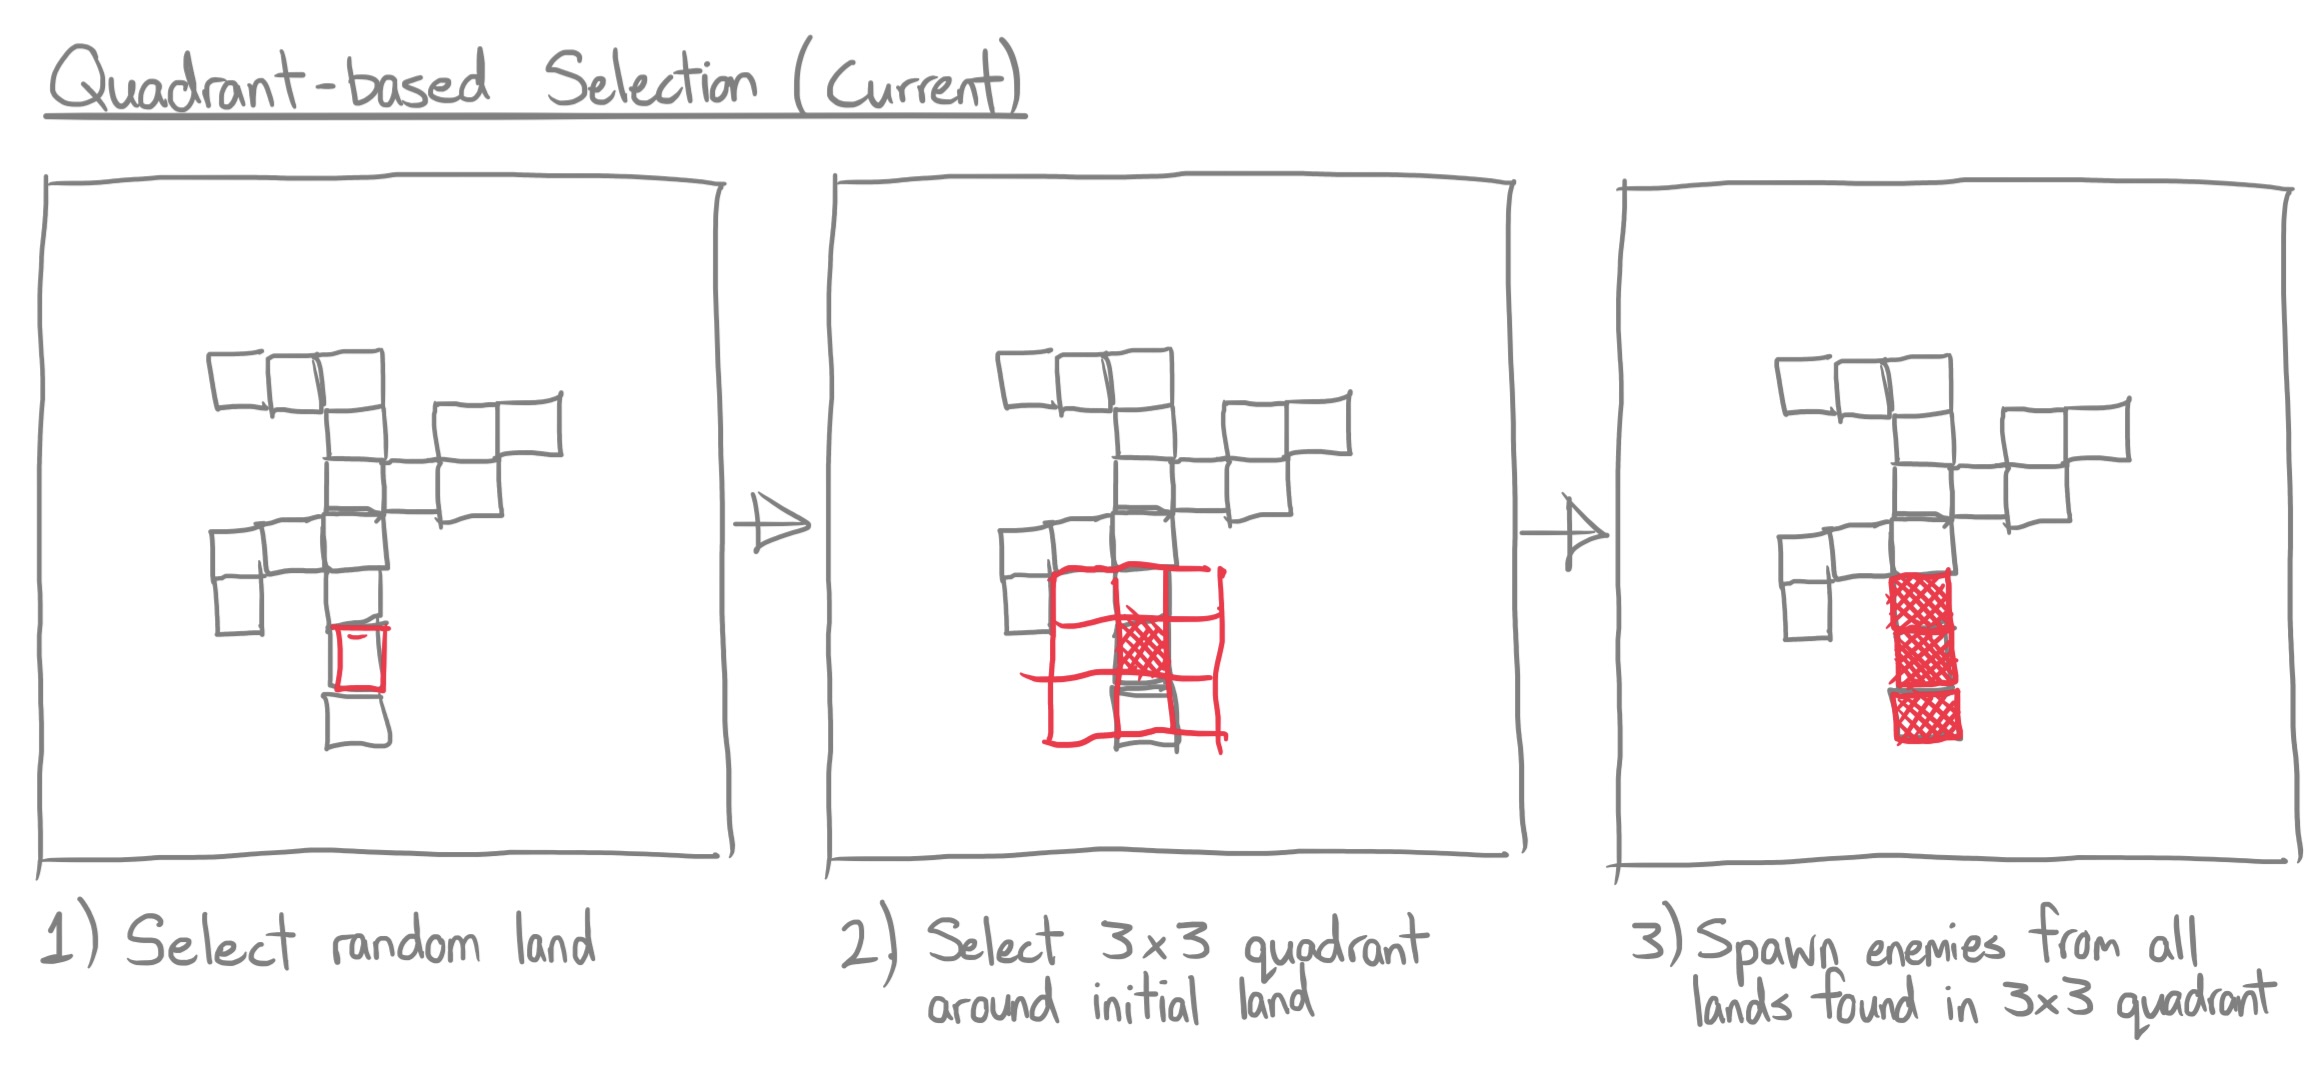 Quadrant-based Selection (Current)
1) Select random land
2) Select 3x3 quadrant
around initial land
3) Spawn enemies from all
lands found in 3x3 quadrant